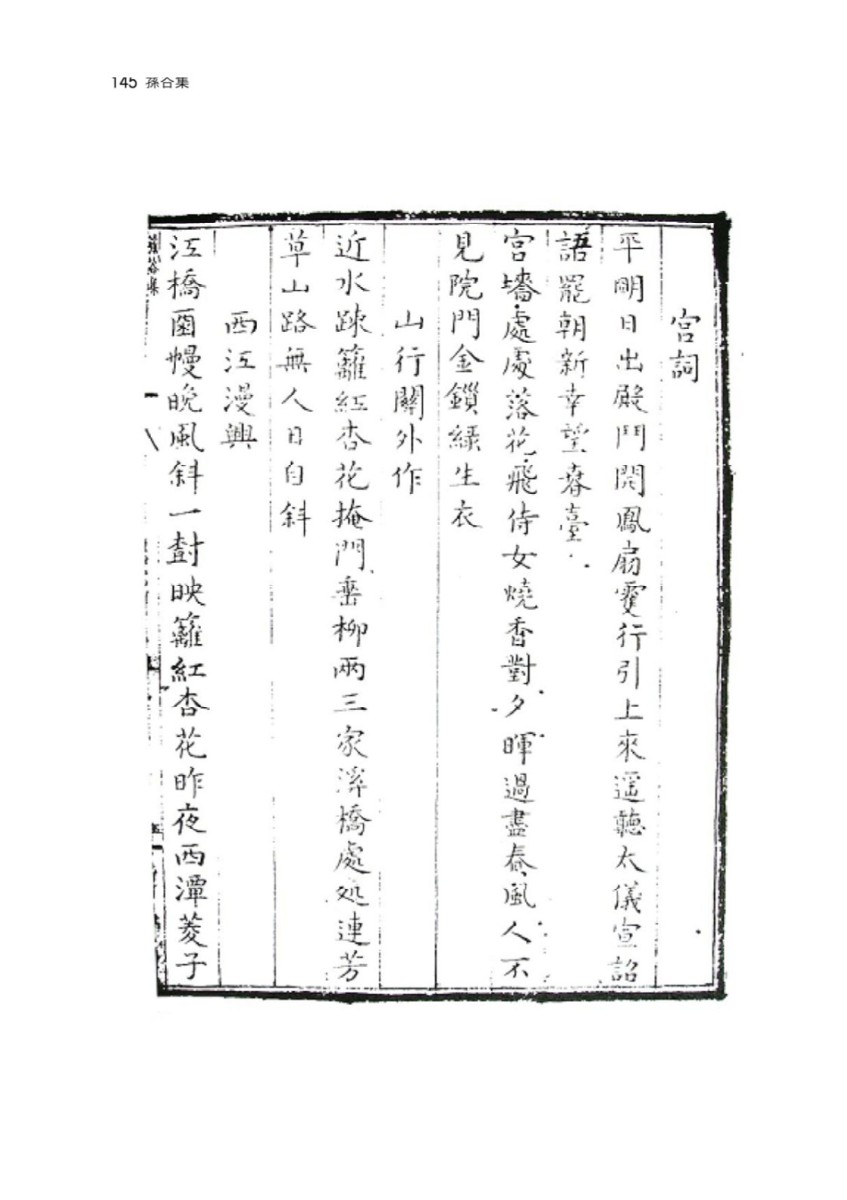 145 孫合集
宮詞
平明日出殿門開鳳扇雙行引上來遥聽太儀宣詔
語罷朝新幸望春臺
宮墻處處落花飛侍女燒香對夕暉過盡春風人不
見院門金鎖緑生衣
山行關外作
近水踈籬紅杏花掩門垂柳兩三家溪橋處処連芳
草山路無人日自斜
西江漫興
江橋酒幔晩風斜一樹映籬紅杏花昨夜西潭菱子